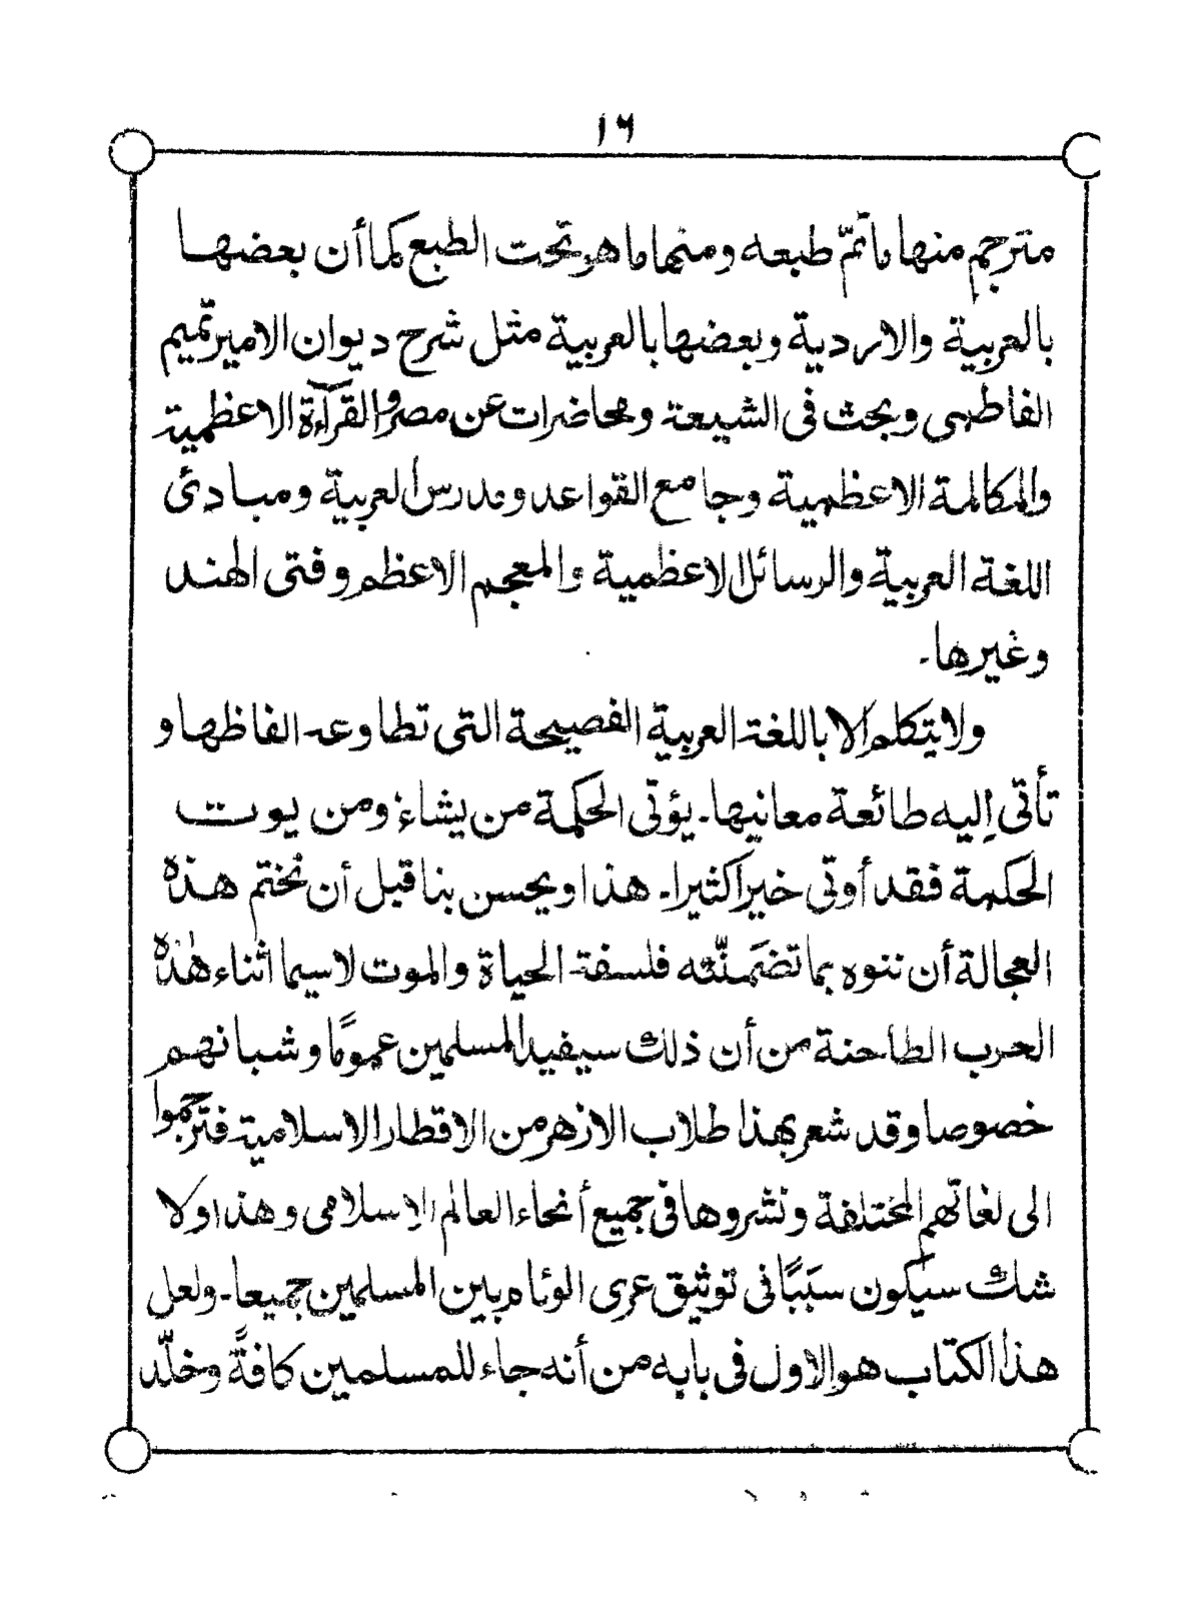 ١٦
مترجم منها ماتمّ طبعه ومنها ما هو تحت الطبع كما أن بعضها
بالعربية والاردية وبعضها بالعربية مثل شرح ديوان الامير تميم
الفاطمى وبحث فى الشيعة ومحاضرات عن مصر والقرآءة الاعظمية
والمكالمة الاعظمية وجامع القواعد ومدرس العربية ومبادئ
اللغة العربية والرسائل الاعظمية والمعجم الاعظم وفتى الهند
وغيرها۔
ولا يتكلم الا باللغة العربية الفصيحة التى تطاوعه الفاظها و
تأتى إليه طائعة معانيها۔ يؤتى الحكمة من يشاء ومن يوت
الحكمة فقد أوتى خيرا كثيرا۔ هذا ويحسن بنا قبل أن نختم هذه
العجالة أن ننوه بما تضمّنته فلسفة الحياة والموت لاسيما اثناء هٰذه
الحرب الطاحنة من أن ذلك سيفيد المسلمين عمومًا وشبانهم
خصوصا وقد شعر بهذا طلاب الازهر من الاقطار الاسلامية فترجموا
الى لغاتهم المختلفة ونشروها فى جميع أنحاء العالم الإسلامى وهذا ولا
شك سيكون سببًا فى توثيق عرى الوئام بين المسلمين جميعا۔ ولعل
هذا الكتاب هو الاول فى بابه من أنه جاء للمسلمين كافةً وخلّد